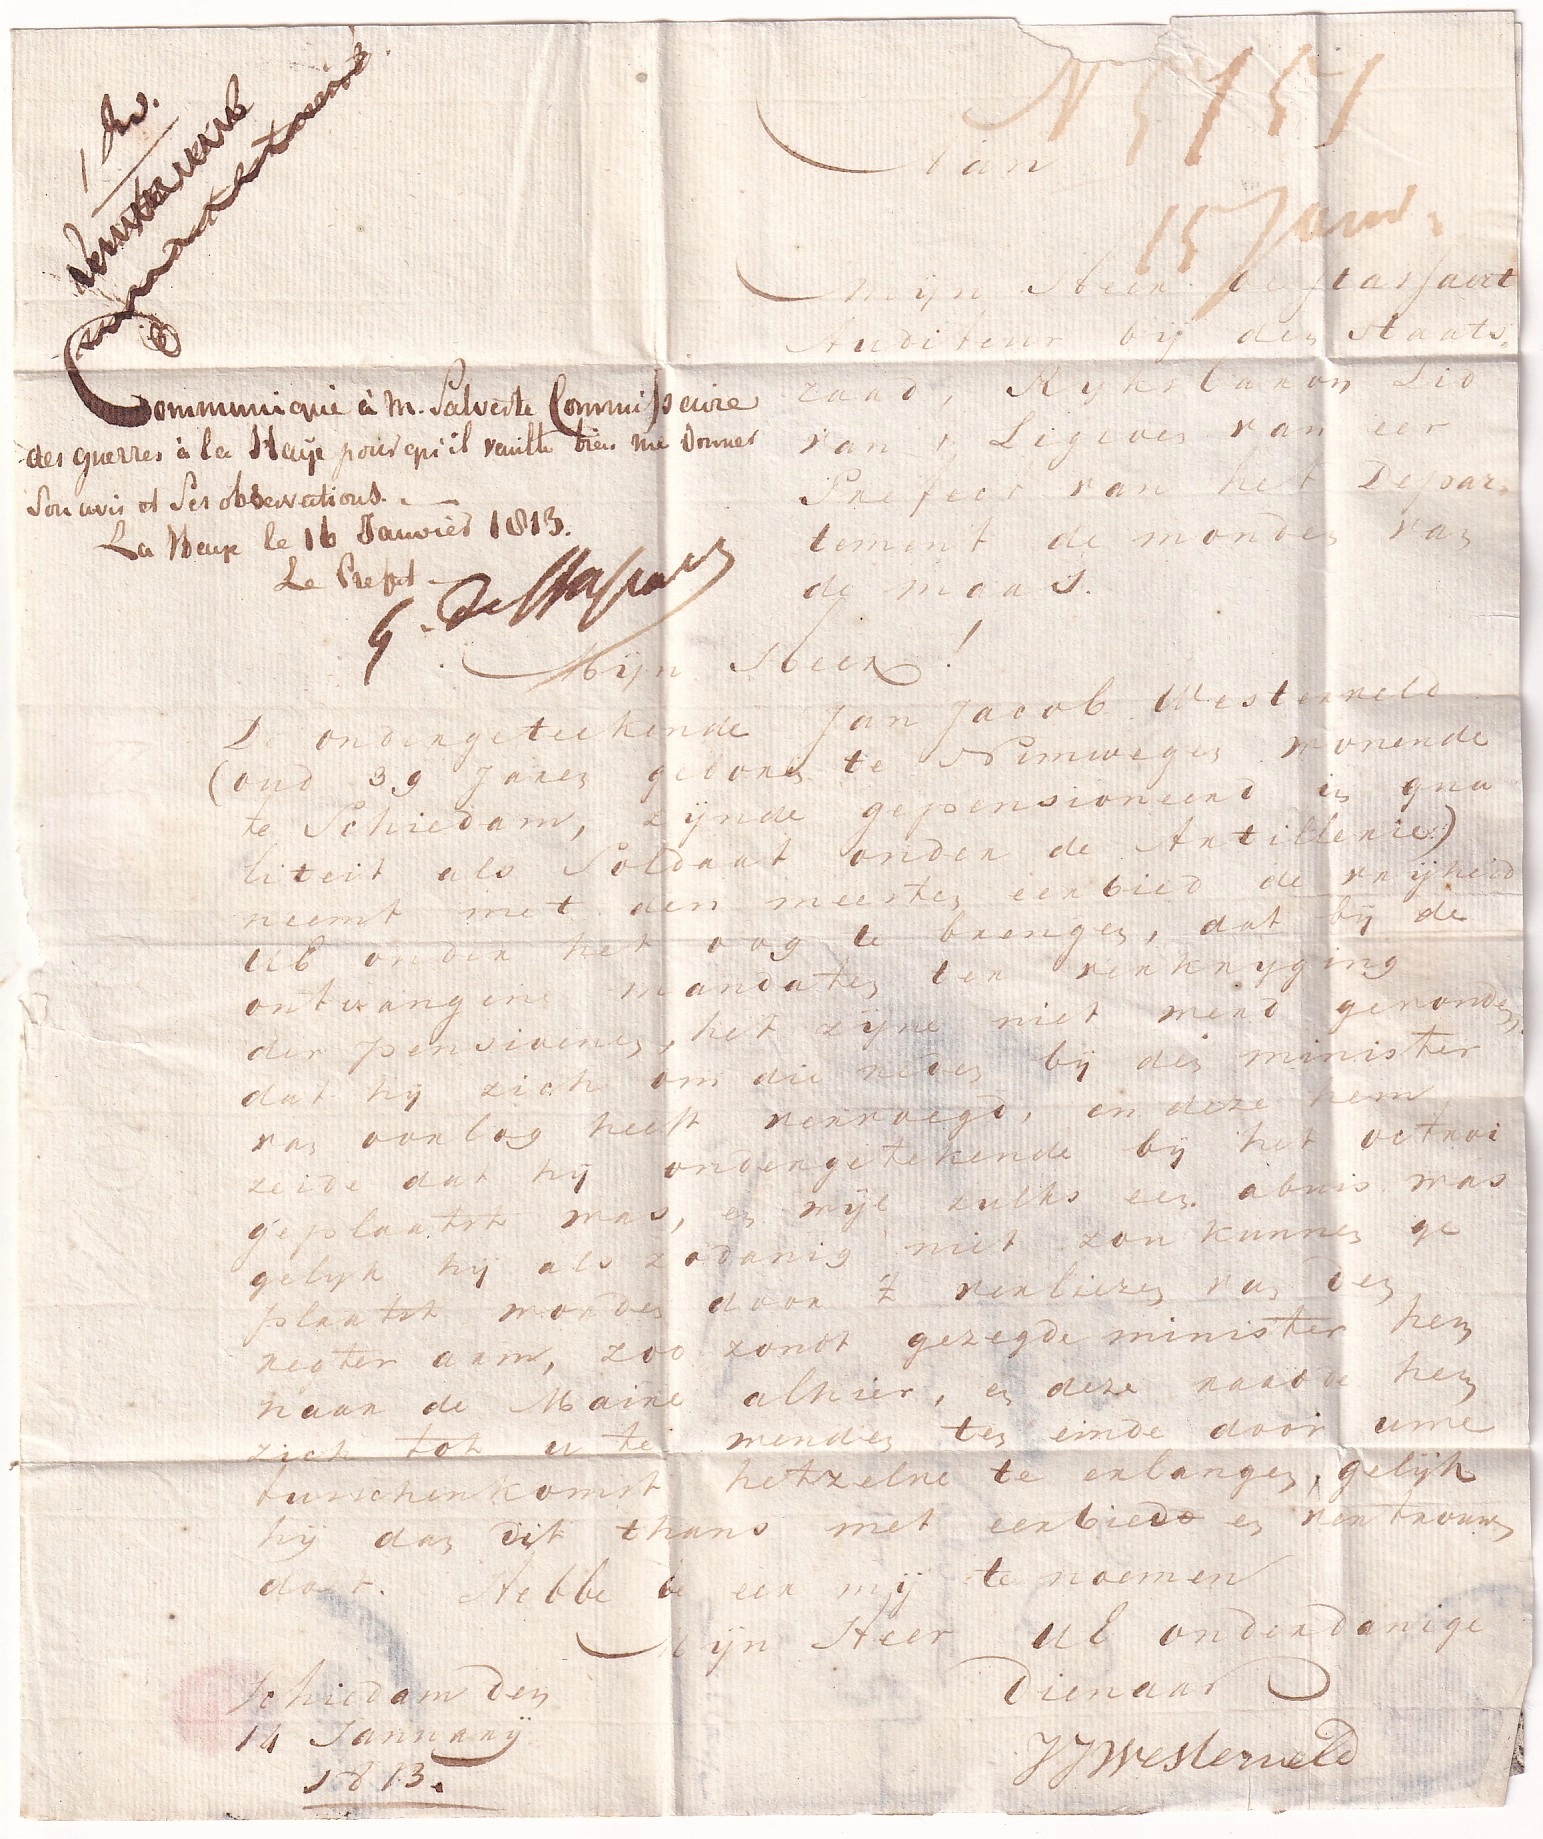 N 5151
Aan
15 Janv.
Mijn Heer de Stassaert
Auditeur bij den Staats,
raad, Ryks baron Lid
van 't Legioen van eer
Prefect van het Depar,
tement de monden van
de maas.
Communiqué à M. Salverte Commissaire
des guerres à la Haye pour qu'il veuille bien me donner
Son avis et Ses observations. —
La Haye le 16 Janvier 1813.
Le Prefet
G. De Stassart
Mijn Heer!
De ondergeteekende Jan Jacob Westerveld
(oud 39 Jaren geboren te Nimwegen wonende
te Schiedam, zijnde gepensioneerd in qua
liteit als Soldaat onder de Artillerie)
neemt met den meesten eerbied de vrijheid
UE onder het oog te brengen, dat bij de
ontvangene mandaten ter verkryging
der pensioenen, het zijne niet werd gevonden,
dat hij zich om die reden bij den minister
van oorlog heeft vervoegd, en deze hem
zeide dat hij ondergetekende bij het octroi
geplaatst was, en wijl zulks een abuis was
gelyk hij als zodanig niet zou kunnen ge
plaatst worden door 't verliezen van den
regter arm, zoo zondt gezegde minister hem
naar de Maire alhier, en deze raadde hem
zich tot u te wenden ten einde door uwe
tusschenkomst hetzelve te erlangen, gelijk
hij dan dit thans met eerbied en vertrouwen
doet. Hebbe de eer mij te noemen
Mijn Heer UE onderdanige
Dienaar
Schiedam den
14 January
1813.
JJWesterveld